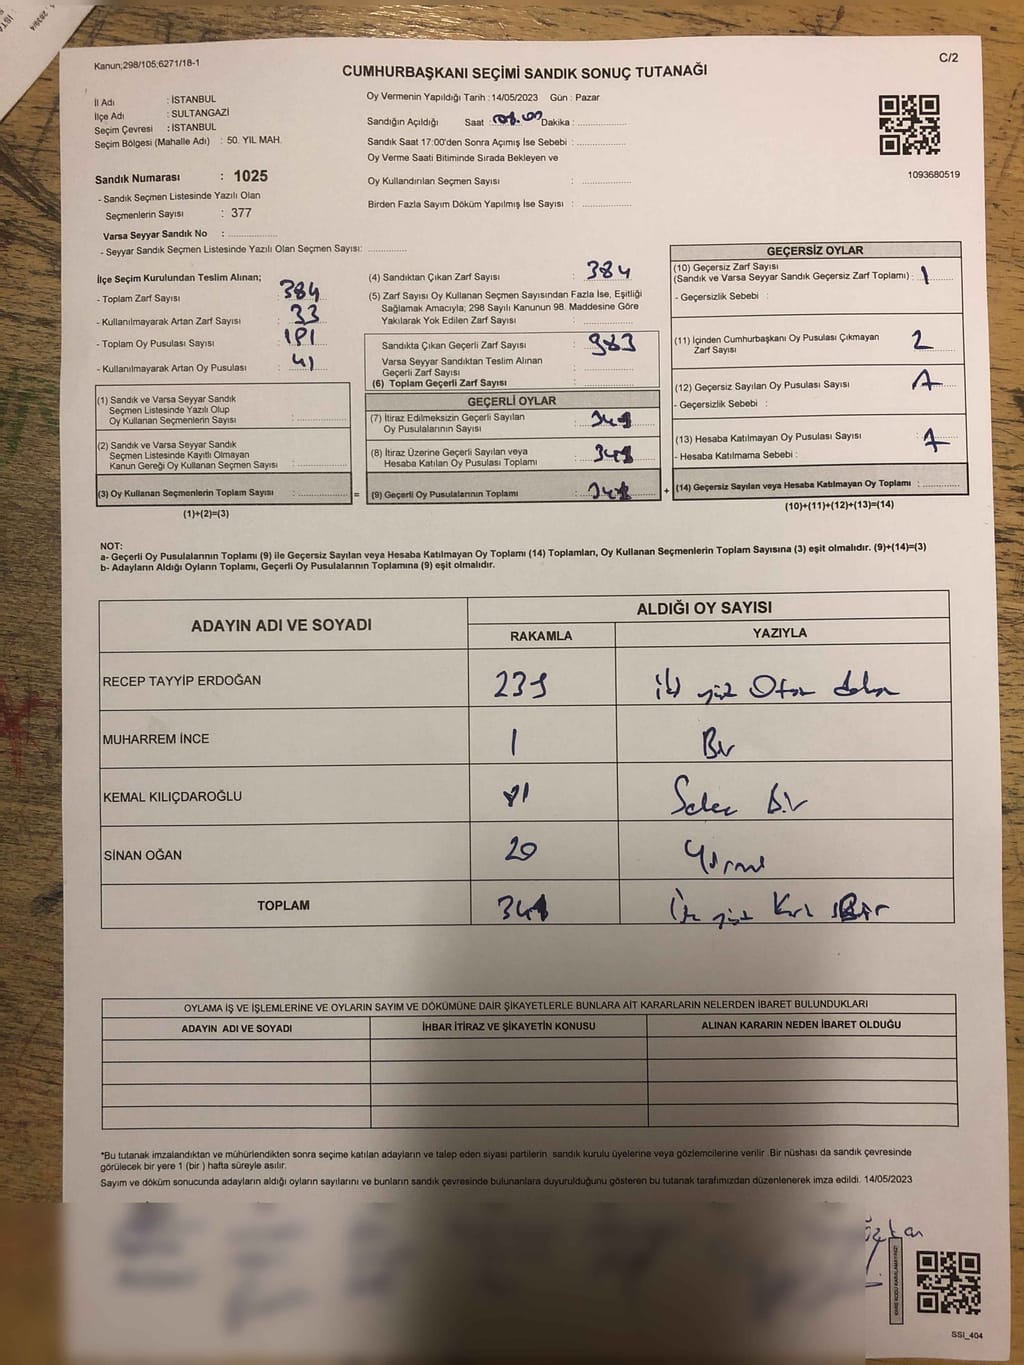 Kanun;298/105;6271/18-1
C/2
CUMHURBAŞKANI SEÇİMİ SANDIK SONUÇ TUTANAĞI
İl Adı : İSTANBUL
İlçe Adı : SULTANGAZİ
Seçim Çevresi : İSTANBUL
Seçim Bölgesi (Mahalle Adı) : 50. YIL MAH.
Sandık Numarası : 1025
- Sandık Seçmen Listesinde Yazılı Olan
Seçmenlerin Sayısı : 377
Varsa Seyyar Sandık No : ................
- Seyyar Sandık Seçmen Listesinde Yazılı Olan Seçmen Sayısı: ............
Oy Vermenin Yapıldığı Tarih : 14/05/2023 Gün : Pazar
Sandığın Açıldığı Saat : Dakika : ................
Sandık Saat 17:00'den Sonra Açımış İse Sebebi : ................
Oy Verme Saati Bitiminde Sırada Bekleyen ve
Oy Kullandırılan Seçmen Sayısı : ................
Birden Fazla Sayım Döküm Yapılmış İse Sayısı : ................
1093680519
İlçe Seçim Kurulundan Teslim Alınan;
- Toplam Zarf Sayısı : 384
- Kullanılmayarak Artan Zarf Sayısı : 33
- Toplam Oy Pusulası Sayısı :
- Kullanılmayarak Artan Oy Pusulası : 41
(1) Sandık ve Varsa Seyyar Sandık
Seçmen Listesinde Yazılı Olup
Oy Kullanan Seçmenlerin Sayısı : ................
(2) Sandık ve Varsa Seyyar Sandık
Seçmen Listesinde Kayıtlı Olmayan
Kanun Gereği Oy Kullanan Seçmen Sayısı : ................
(3) Oy Kullanan Seçmenlerin Toplam Sayısı : ................ =
(1)+(2)=(3)
(4) Sandıktan Çıkan Zarf Sayısı : 384
(5) Zarf Sayısı Oy Kullanan Seçmen Sayısından Fazla İse, Eşitliği
Sağlamak Amacıyla; 298 Sayılı Kanunun 98. Maddesine Göre
Yakılarak Yok Edilen Zarf Sayısı : ................
Sandıkta Çıkan Geçerli Zarf Sayısı : 383
Varsa Seyyar Sandıktan Teslim Alınan
Geçerli Zarf Sayısı : ................
(6) Toplam Geçerli Zarf Sayısı : ................
GEÇERLİ OYLAR
(7) İtiraz Edilmeksizin Geçerli Sayılan
Oy Pusulalarının Sayısı :
(8) İtiraz Üzerine Geçerli Sayılan veya
Hesaba Katılan Oy Pusulası Toplamı :
(9) Geçerli Oy Pusulalarının Toplamı : +
GEÇERSİZ OYLAR
(10) Geçersiz Zarf Sayısı
(Sandık ve Varsa Seyyar Sandık Geçersiz Zarf Toplamı) : 1
- Geçersizlik Sebebi :
(11) İçinden Cumhurbaşkanı Oy Pusulası Çıkmayan
Zarf Sayısı : 2
(12) Geçersiz Sayılan Oy Pusulası Sayısı :
- Geçersizlik Sebebi :
(13) Hesaba Katılmayan Oy Pusulası Sayısı : 7
- Hesaba Katılmama Sebebi :
(14) Geçersiz Sayılan veya Hesaba Katılmayan Oy Toplamı : ............
(10)+(11)+(12)+(13)=(14)
NOT:
a- Geçerli Oy Pusulalarının Toplamı (9) ile Geçersiz Sayılan veya Hesaba Katılmayan Oy Toplamı (14) Toplamları, Oy Kullanan Seçmenlerin Toplam Sayısına (3) eşit olmalıdır. (9)+(14)=(3)
b- Adayların Aldığı Oyların Toplamı, Geçerli Oy Pusulalarının Toplamına (9) eşit olmalıdır.
ADAYIN ADI VE SOYADI ALDIĞI OY SAYISI
RAKAMLA YAZIYLA
RECEP TAYYİP ERDOĞAN 239 iki yüz Otuz dokuz
MUHARREM İNCE 1 Bir
KEMAL KILIÇDAROĞLU 81 Seksen Bir
SİNAN OĞAN 20 Yirmi
TOPLAM 341 yüz Kırk Bir
OYLAMA İŞ VE İŞLEMLERİNE VE OYLARIN SAYIM VE DÖKÜMÜNE DAİR ŞİKAYETLERLE BUNLARA AİT KARARLARIN NELERDEN İBARET BULUNDUKLARI
ADAYIN ADI VE SOYADI İHBAR İTİRAZ VE ŞİKAYETİN KONUSU ALINAN KARARIN NEDEN İBARET OLDUĞU
*Bu tutanak imzalandıktan ve mühürlendikten sonra seçime katılan adayların ve talep eden siyasi partilerin sandık kurulu üyelerine veya gözlemcilerine verilir .Bir nüshası da sandık çevresinde
görülecek bir yere 1 (bir ) hafta süreyle asılır.
Sayım ve döküm sonucunda adayların aldığı oyların sayılarını ve bunların sandık çevresinde bulunanlara duyurulduğunu gösteren bu tutanak tarafımızdan düzenlenerek imza edildi. 14/05/2023
SSI_404